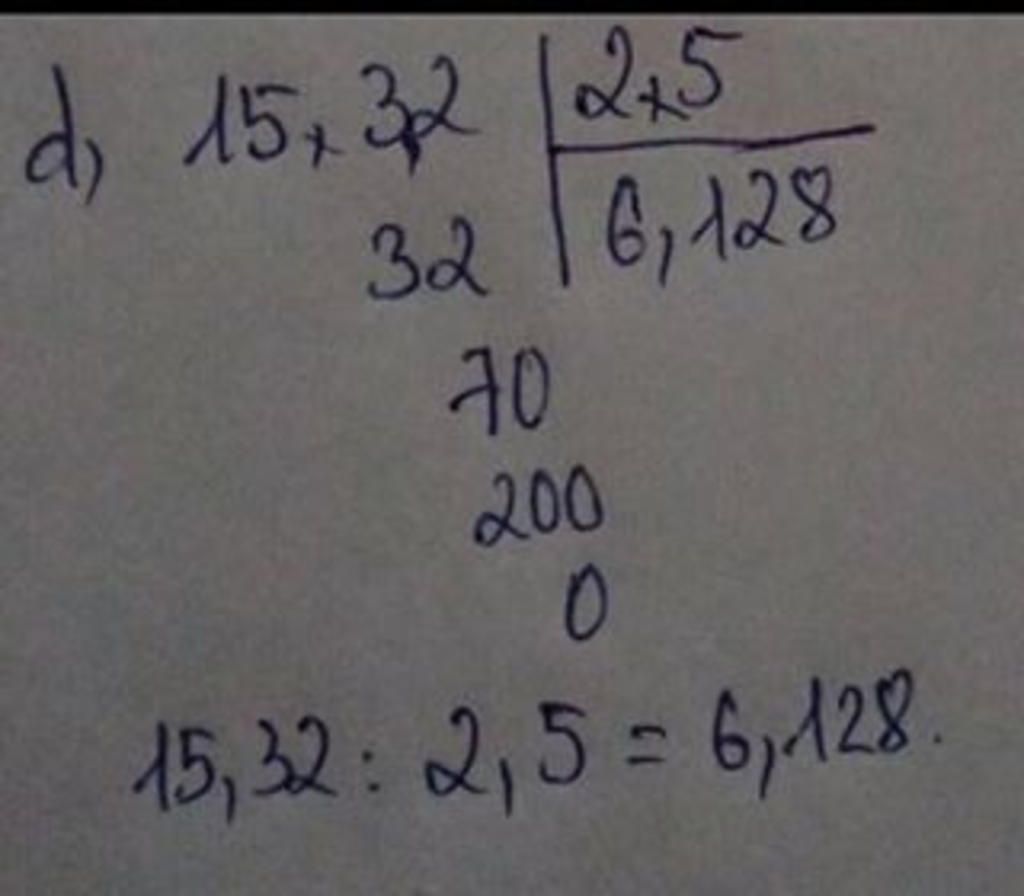 d, 15,3,2 | 2,5
32 | 6,128
70
200
0
15,32 : 2,5 = 6,128.